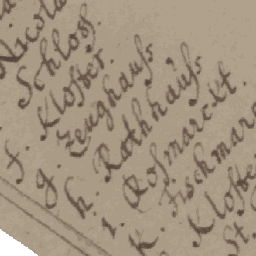 Schloss.
f. Kloster.
g. Zeughauss
h. Rathhauss
i. Rossmarckt.
K. Fischmar
Kloste
St.